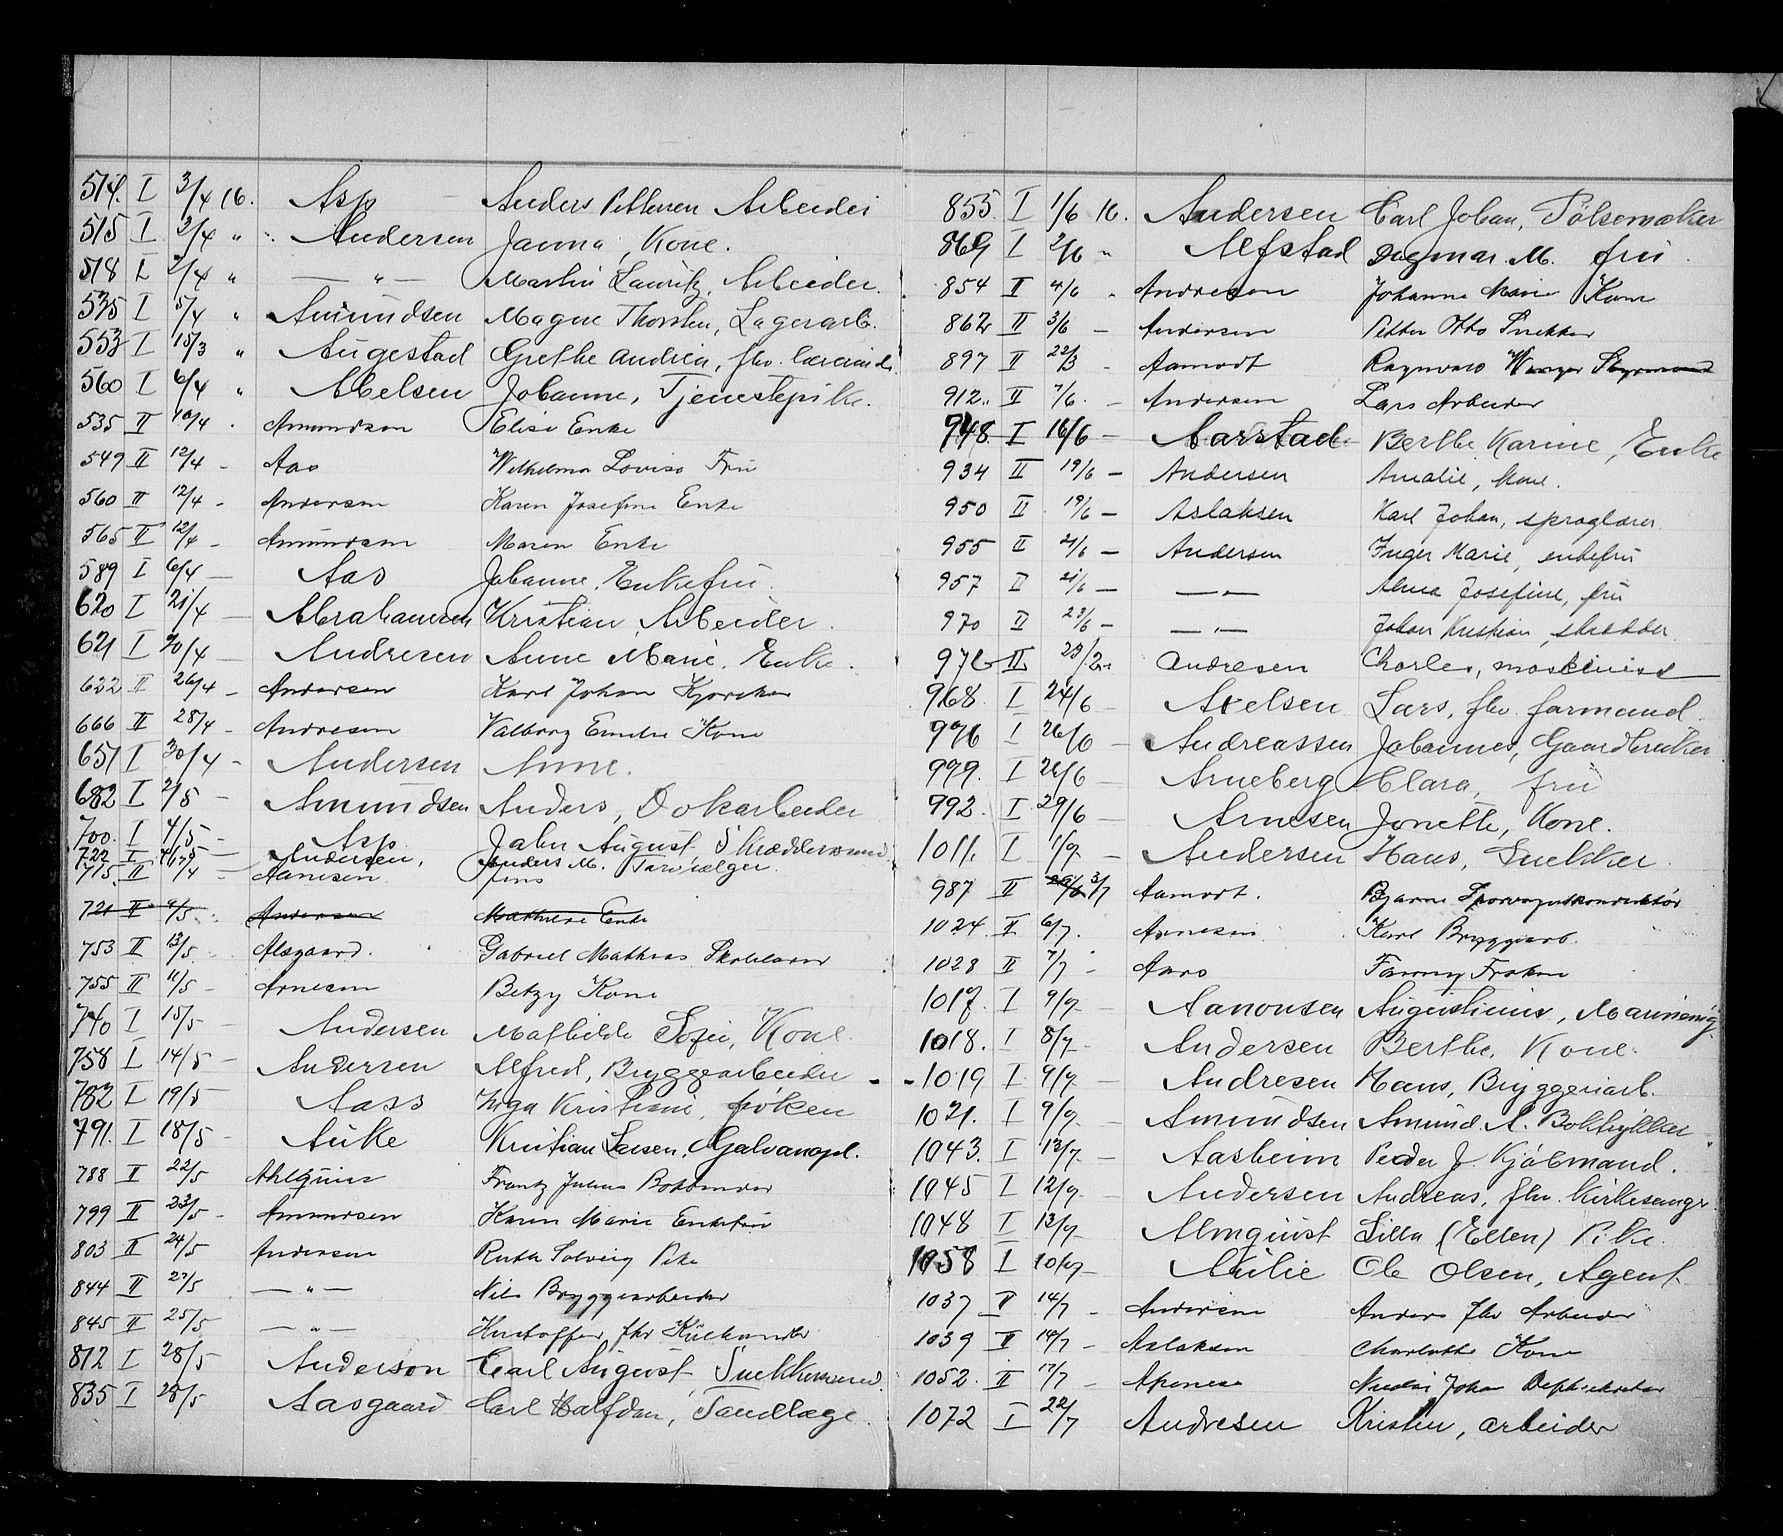 514. I 3/4 16. Asp Anders Pettersen Arbeider
515 I 2/4 " Andersen Janna, Kone.
518 I 2/4 " — " — Martin Lauritz, Arbeider.
535 I 5/4 " Amundsen Magne Thorsten, Lagerarb.
553 I 15/3 " Augestad Grethe Andrea, fhv.
560 I 6/4 " Abelsen Johanne, Tjenestepike.
535 II 10/4 Amundsen Elise Enke
549 II 12/4 - Aas Wilhelma Lovise Fru
560 II 12/4 - Andersen Karen Josefine Enke
565 II 12/4 - Amundsen Maren Enke
589 I 6/4 — Aas Johanne, Enkefru.
620 I 21/4 — Abrahamsen Kristian, Arbeider.
621 I 20/4 — Andresen Anne Marie, Enke.
622 II 26/4 - Andersen Karl Johan
666 II 28/4 - Andresen Valborg Emilie Kone
651 I 30/4 - Andersen Anne.
682 I 2/5 - Amundsen Anders, Dokarbeider
700. I 4/5 - Asp John August Skræddersvend
722 I Andersen, Anders M. Tarvsælger
715 II Jens
721 II 9/5 Andersen Mathilde Enke
753 II 13/5 Alsgaard. Gabriel Mathias
755 II 11/5 - Arnesen Betzy Kone
740 I 15/5 — Andersen Mathilde Sofie, Kone.
758 I 14/5 — Andersen Alfred, Bryggearbeider
782 I 19/5 — Aass Inga Kristiane, frøken
791. I 18/5 - Auke Kristian Larsen, Galvanopl.
788 II 22/5 Ahlquist Frantz Julius Bokbinder
799 II 23/5 - Amundsen Karen Marie Enkefru
803 II 24/5 Andersen Ruth Solveig Pike
844 II 27/5 — " — Nils Bryggearbeider
845 II 25/5 — " — Kristoffer, fhv Kulhandler
812 I 28/5 Anderson Carl August, Snekkersvend.
835 I 28/5 Aasgaard Carl Halfdan, Tandlæge.
855. I 1/6 16. Andersen Carl Johan, Pølsemaker
869 I 2/6 " Alfstad Dagmar M. fru.
854 II 4/6 Andresen Johanne Marie Kone
862 II 3/6 — Andersen Petter Otto Snekker
897 II 22/3 - Aamodt Ragnvald Styrmand
912. II 7/6. — Andersen Lars Arbeider
948 I 16/6 — Aarstad Berthe Karine, Enke
934 II 19/6 — Andersen Amalie, kone.
950 II 19/6 — Aslaksen Karl Johan, sproglærer
955 II 21/6 — Andersen Inger Marie, enkefru
957 II 21/6 — — " — Alma Josefine, fru
970 II 23/6 — — " — Johan Kristian, skrædder.
972 II Andresen Charles, maskinist
968. I 24/6 — Axelsen Lars, fhv. formand.
976 I 26/6 — Andreassen Johannes, Gaardbruker.
979. I 26/6 — Arneberg Clara, fru
992. I 29/6 — Arnesen Jonette, Kone.
1011. I 1/7. — Andersen Hans, Snekker.
987 II 29/6 3/7 Aamodt. Bjarne Sporvognskonduktør
1024. II 6/7. Arnesen Karl Bryggearb.
1028 II 7/7 - Aars Fanny Frøken
1017. I 9/7. — Aanonsen Augustinius,
1018. I 8/7. — Andersen Berthe, Kone.
1019 I 9/7. — Andresen Hans, Bryggeriarb.
1021. I 9/7. — Amundsen Amund. A. Boktrykker
1043. I 12/7. — Aasheim Peder J. Kjøbmand.
1045 I 12/7. — Andersen Andreas, fhv. Kirkesanger
1048 I 13/7 — Almquist Silla (Ellen) Pike.
1058 I 10/7 — Aulie Ole Olsen, Agent
1037 II 14/7 - Andersen Anders fhv Arbeider
1039 II 14/7 - Aslaksen Charlotte Kone
1052. II 17/7 - Johan
1072 I 22/7 Andresen Kristen, arbeider